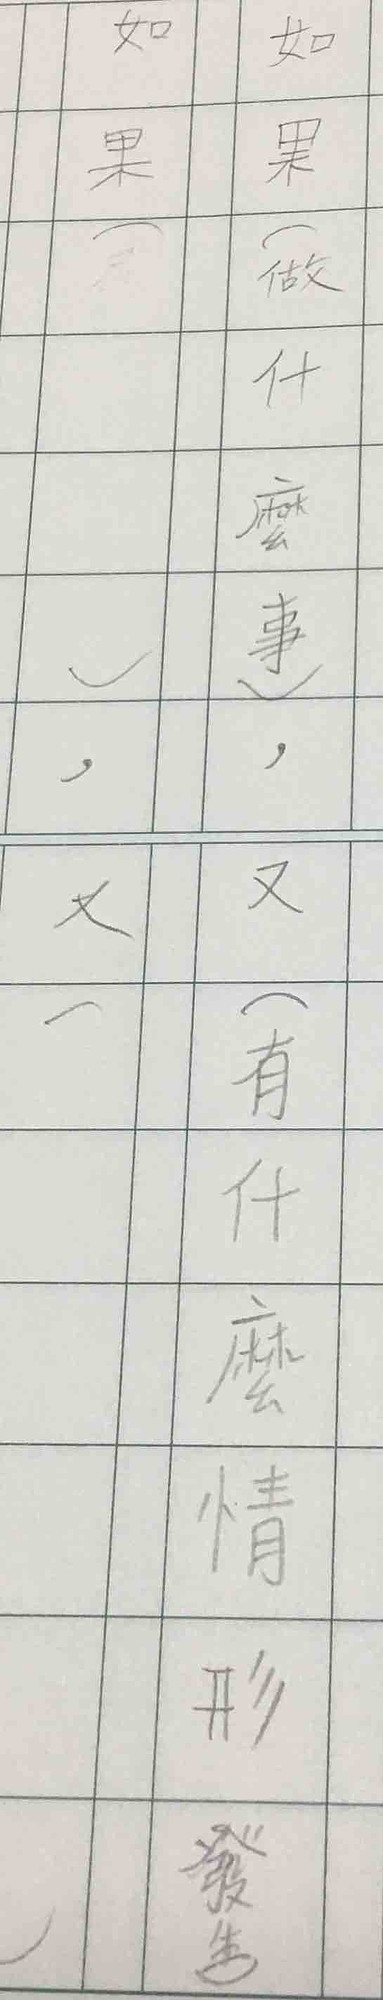 如果（做什麼事），又（有什麼情形發生
如果（　　　　），又（　　　　　　）